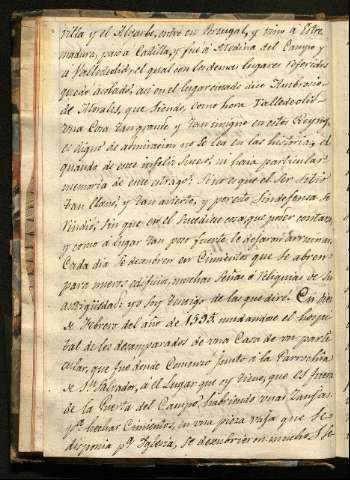 villa y el Algarbe, entró en Portugal, y vino a Estre
madura, pasó a Castilla, y fue a Medina del Campo y
a Valladolid, el qual con los demas lugares referidos
quedo asolado, aci en el lugar citado dice Ambrosio
de Morales, que siendo, como hera Valledolid
una Cosa tan grande y tan insigne en estos Reynos
es digno de admiracion no se lea en las historias, el
quando de este infeliz suceso, ni haia particular
memoria de este estrago; sino es que el ser sitio
tan llano, y tan avierto, y por esto sin defensa se
rindio, sin que en el sucediese cosa que poder contar,
y como a lugar tan poco fuerte le dejaron arruinar.
Cada dia se descubren en Cimientos que se abren
para nuevos edificios, muchas señas o reliquias de su
antigüedad: yo soy testigo de las que diré. En
de Febrero del año de 1595 mudandose el hospi
tal de los desamparados de una Casa de un parti
cular, que fue donde Comenzó junto a la Parroquia
de Sn. Salvador, a el Lugar que oy tiene, que es fuera
de la Puerta del Campo, habriendo unas Zanjas
pa. hechar Cimientos, en una pieza vaja que se
disponia pa. Iglesia, se descubrieron muchos